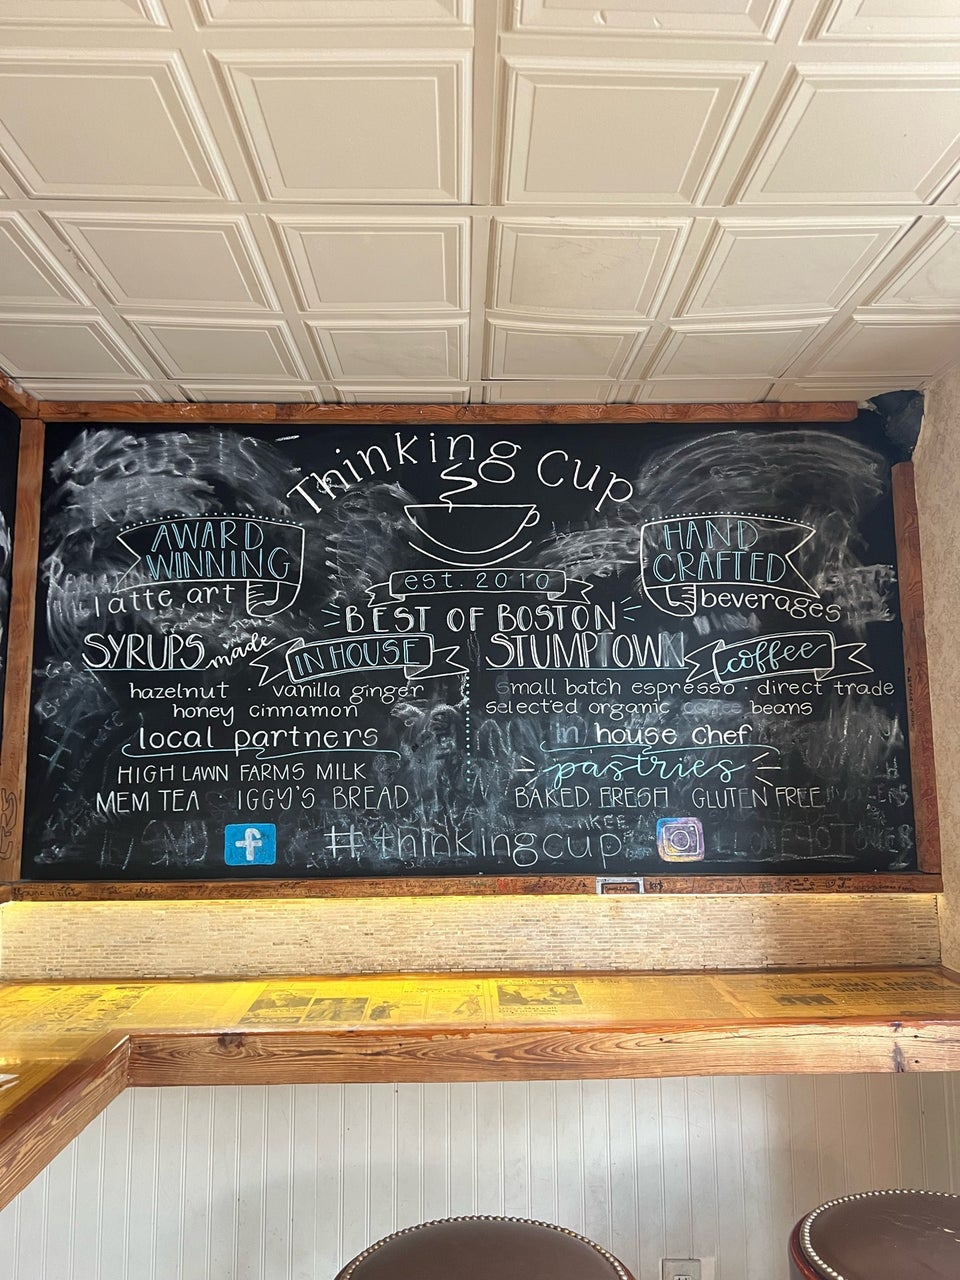 Thinking Cup
est. 2010
BEST OF BOSTON
AWARD
WINNING
latte art
SYRUPS made
IN HOUSE
hazelnut · vanilla ginger
honey cinnamon
local partners
HIGH LAWN FARMS MILK
MEM TEA · IGGY'S BREAD
HAND
CRAFTED
beverages
STUMPTOWN
coffee
small batch espresso · direct trade
selected organic coffee beans
in house chef
pastries
BAKED FRESH GLUTEN FREE
f
#thinkingcup